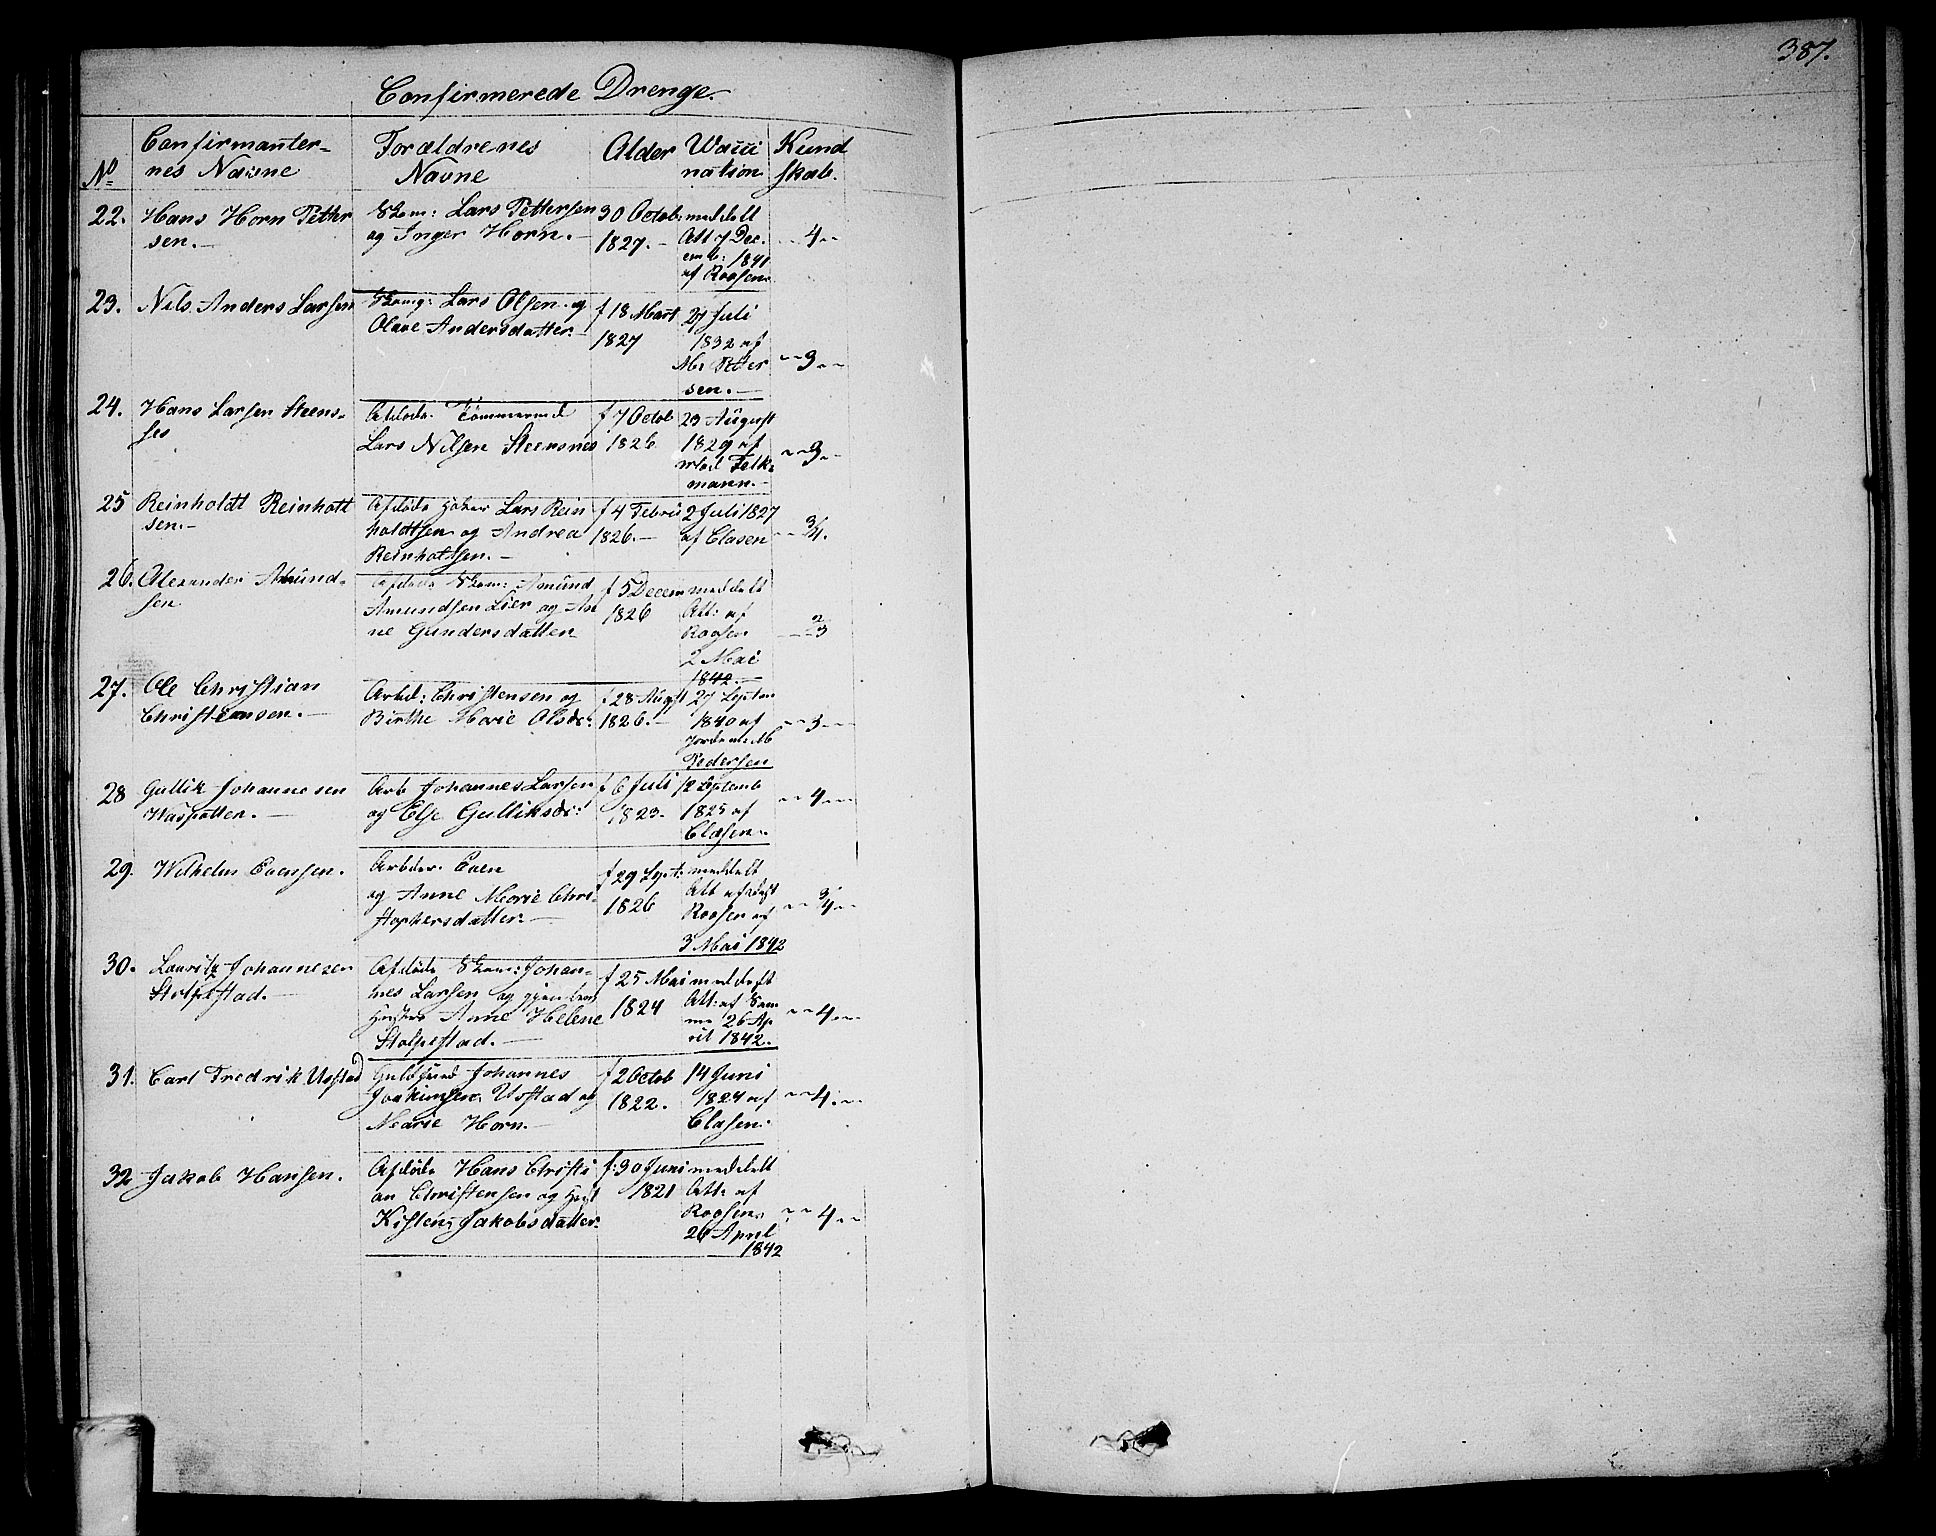 387.
Confirmerede Drenge.
No Confirmanternes Navne Forældrenes Navne Alder Waccination Kundskab.
22. Hans Horn Petter
sen.
Skom: Lars Pettersen
og Inger Horn.
30 Octob:
1827.
meddelt
Att 7 Dec
emb: 1841
af Roosen
4
23. Nils Anders Larsen
Lars Olsen og
Olave Andersdatter
f 18 Mart
1827
27 Juli
1832 af
M. Peter
sen.
3
24. Hans Larsen Steens-
Afdøde Tömmermand
Lars Nilsen Steensnes
f 7 Octob
1826
23 August
1829 af
Felk-
mann.
3
25 Reinholdt Reinholt
sen.
Afdøde Lars Rein
holdtsen og Andrea
Reinholtsen.
f 4 Febru
1826.
2 Juli 1827
af Clasen
3/4.
26. Alexander Amund-
sen
Afdøde Skom: Amund
Amundsen Lier og An
ne Gundersdatter
f 5 Decem
1826
meddelt
Att: af
Roosen
2 Mai
1842.
2/3
27. Ole Christian
Christensen.
Arbd: Christensen og
Birthe Marie Olsdr:
f 28 Augst
1826.
27 Septem
1840 af
Jordem: M
Pedersen
3
28 Gullik Johannesen
Arb Johannes Larsen
og Else Gulliksdr:
f 6 Juli
1823.
12 Septemb
1825 af
Clasen.
4
29. Wilhelm Evensen.
Arbder. Even
og Anne Marie Chri-
stophersdatter
f 29 Sept:
1826
meddelt
Att af
Roosen af
3 Mai 1842
3/4
30. Lauritz Johannesen
Stolpestad.
Afdøde Skom: Johan-
nes Larsen og
Anne Helene
Stolpestad.
f 25 Mai
1824
meddelt
Att: af Sam
me 26 Ap
ril 1842.
4
31. Carl Fredrik Ustad
Guldsmed Johannes
Joakimsen Ustad og
Marie Horn.
f 2 Octob
1822.
14 Juni
1824 af
Clasen.
4
32 Jakob Hansen.
Afdøde Hans Christi
an Christensen og
Kisten Jakobsdatter
f: 30 Juni
1821
meddelt
Att: af
Roosen
26 April
1842
4